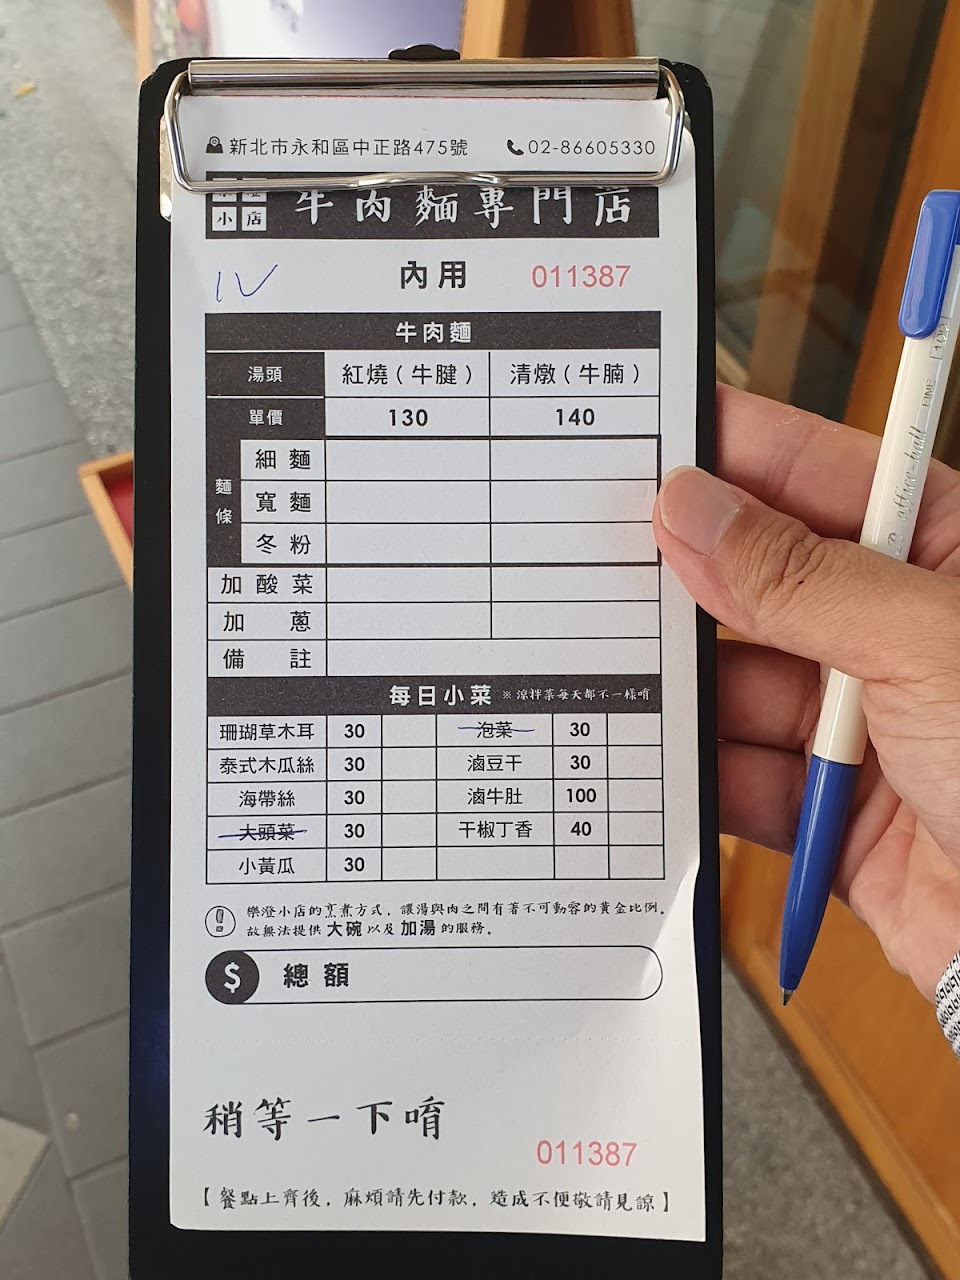 新北市永和區中正路475號 02-86605330
小店 牛肉麵專門店
IV 內用 011387
牛肉麵
湯頭 紅燒(牛腱) 清燉(牛腩)
單價 130 140
麵條 細麵
寬麵
冬粉
加酸菜
加蔥
備註
每日小菜 ※涼拌菜每天都不一樣唷
珊瑚草木耳 30 泡菜 30
泰式木瓜絲 30 滷豆干 30
海帶絲 30 滷牛肚 100
大頭菜 30 干椒丁香 40
小黃瓜 30
樂澄小店的烹煮方式，讓湯與肉之間有著不可動容的黃金比例。
故無法提供 大碗 以及 加湯 的服務。
$ 總額
稍等一下唷
011387
【餐點上齊後，麻煩請先付款，造成不便敬請見諒】
office-hall
FINE